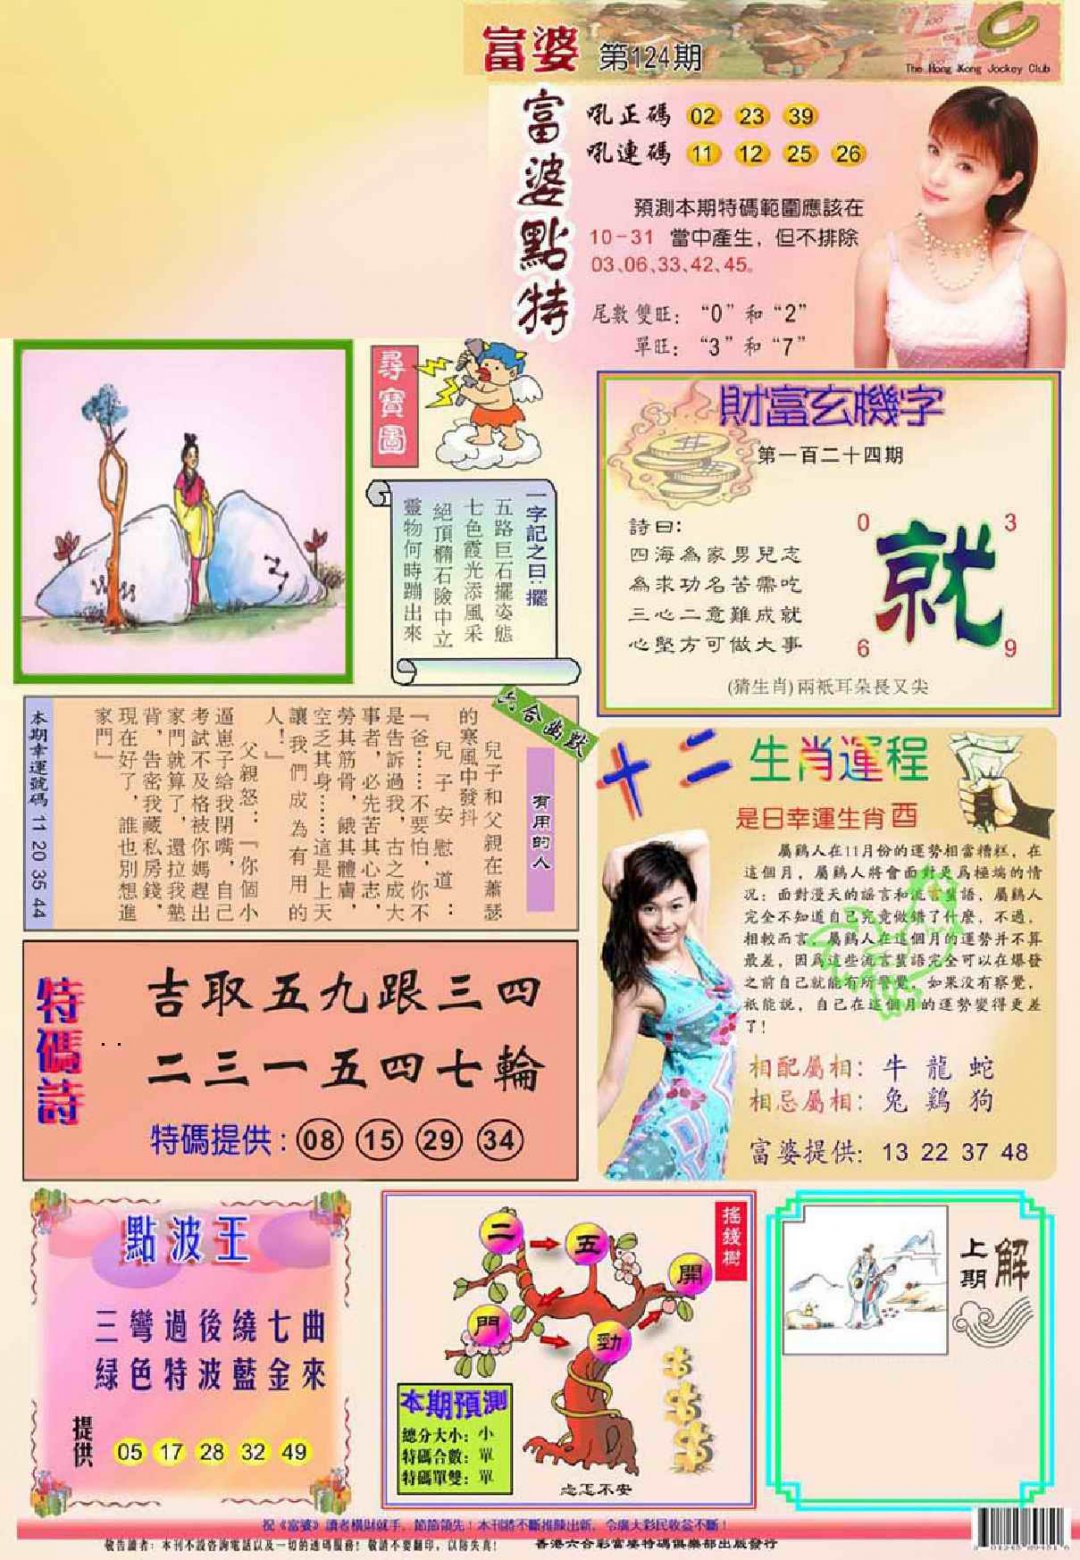 富婆 第124期
The Hong Kong Jockey Club
富婆點特
吼正碼 02 23 39
吼連碼 11 12 25 26
預測本期特碼範圍應該在
10-31 當中產生，但不排除
03、06、33、42、45。
尾數雙旺：“0”和“2”
單旺：“3”和“7”
尋寶圖
一字記之曰：擺
五路巨石擺姿態
七色霞光添風采
絕頂橢石險中立
靈物何時蹦出來
財富玄機字
第一百二十四期
詩曰：
四海為家男兒志
為求功名苦需吃
三心二意難成就
心堅方可做大事
0 3
就
6 9
(猜生肖)兩祇耳朵長又尖
六合幽默
有用的人
兒子和父親在蕭瑟
的寒風中發抖
兒子安慰道：
『爸……不要怕，你不
是告訴過我，古之成大
事者，必先苦其心志，
勞其筋骨，餓其體膚，
空乏其身……這是上天
讓我們成為有用的
人！』
父親怒：『你個小
逼崽子給我閉嘴，自己
考試不及格被你媽趕出
家門就算了，還拉我墊
背，告密我藏私房錢，
現在好了，誰也別想進
家門』
本期幸運號碼 11 20 35 44
十二生肖運程
是日幸運生肖酉
屬鷄人在11月份的運勢相當糟糕，在
這個月，屬鷄人將會面對更爲極端的情
况：面對漫天的謡言和流言蜚語，屬鷄人
完全不知道自己究竟做錯了什麽，不過，
相較而言，屬鷄人在這個月的運勢并不算
最差，因爲這些流言蜚語完全可以在爆發
之前自己就能有所警覺，如果没有察覺，
衹能説，自己在這個月的運勢變得更差
了！
相配屬相：牛 龍 蛇
相忌屬相：兔 鷄 狗
富婆提供：13 22 37 48
特碼詩
吉取五九跟三四
二三一五四七輪
特碼提供：08 15 29 34
點波王
三彎過後繞七曲
綠色特波藍金來
提供 05 17 28 32 49
搖錢樹
二 五
開
門 勁
本期預測
總分大小：小
特碼合數：單
特碼單雙：單
忐忑不安
上期解
祝《富婆》讀者橫財就手，節節領先！本刊將不斷推陳出新，令廣大彩民收益不斷！
敬告讀者：本刊不設咨詢電話以及一切的透碼服務！敬請不要翻印，以防失真！ 香港六合彩富婆特碼俱樂部出版發行